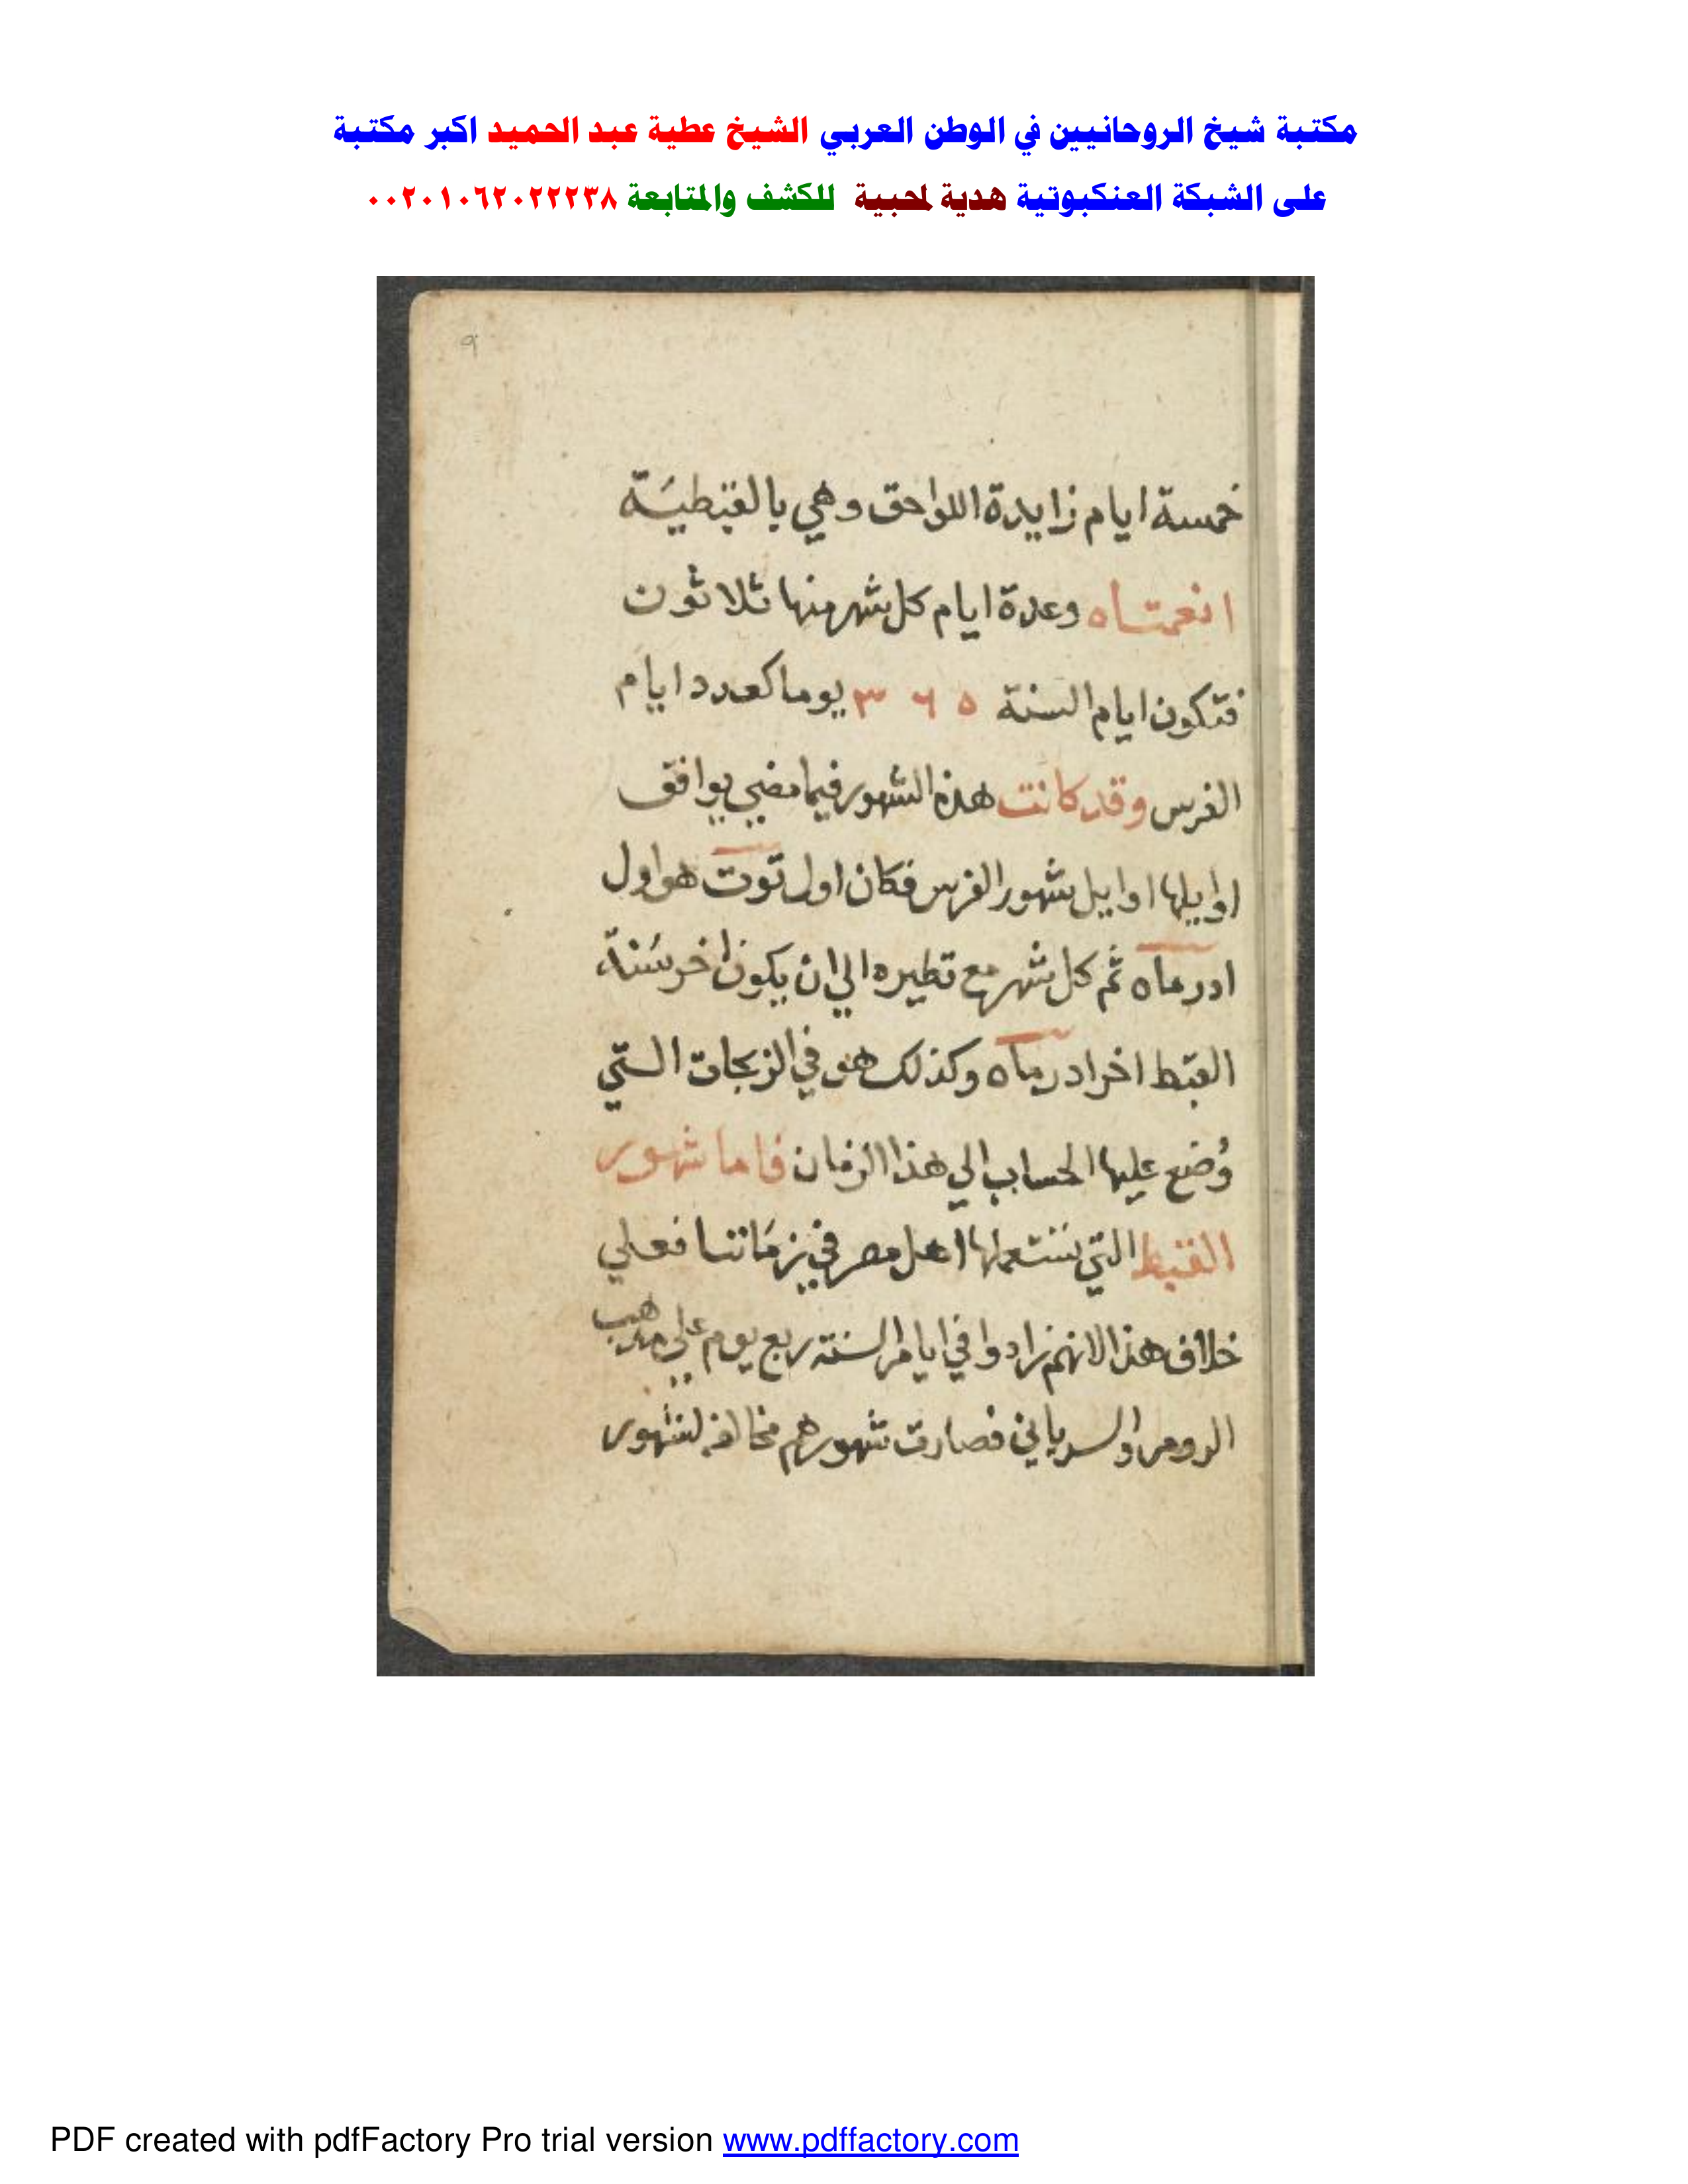 مكتبة شيخ الروحانيين في الوطن العربي الشيخ عطية عبد الحميد اكبر مكتبة
على الشبكة العنكبوتية هدية لمحبية للكشف والمتابعة ٠٠٢٠١٠٦٢٠٢٢٢٣٨
٩
خمسة ايام زايدة اللواحق وهي بالقبطيَة
انغمتاه وعدة ايام كل شهر منها ثلاثون
فتكون ايام السنة ٣٦٥ يوما كعدد ايام
الفرس وقد كانت هذه الشهور فيما مضي يوافق
اوايلها اوايل شهور الفرس فكان اول توت هو اول
ادرماه ثم كل شهر مع نظيره الي ان يكون اخر سَنة
القبط اخر ادرماه وكذلك هو في الزيجات التي
وُضع عليها الحساب الي هذا الزمان فاما شهور
القبط التي يستعملها اهل مصر في زمَاننا فعلي
خلاف هذا لانهم زادوا في ايام السنة ربع يوم علي مذهب
الروم والسرياني فصارت شهورهم مخالفة لشهور
PDF created with pdfFactory Pro trial version www.pdffactory.com